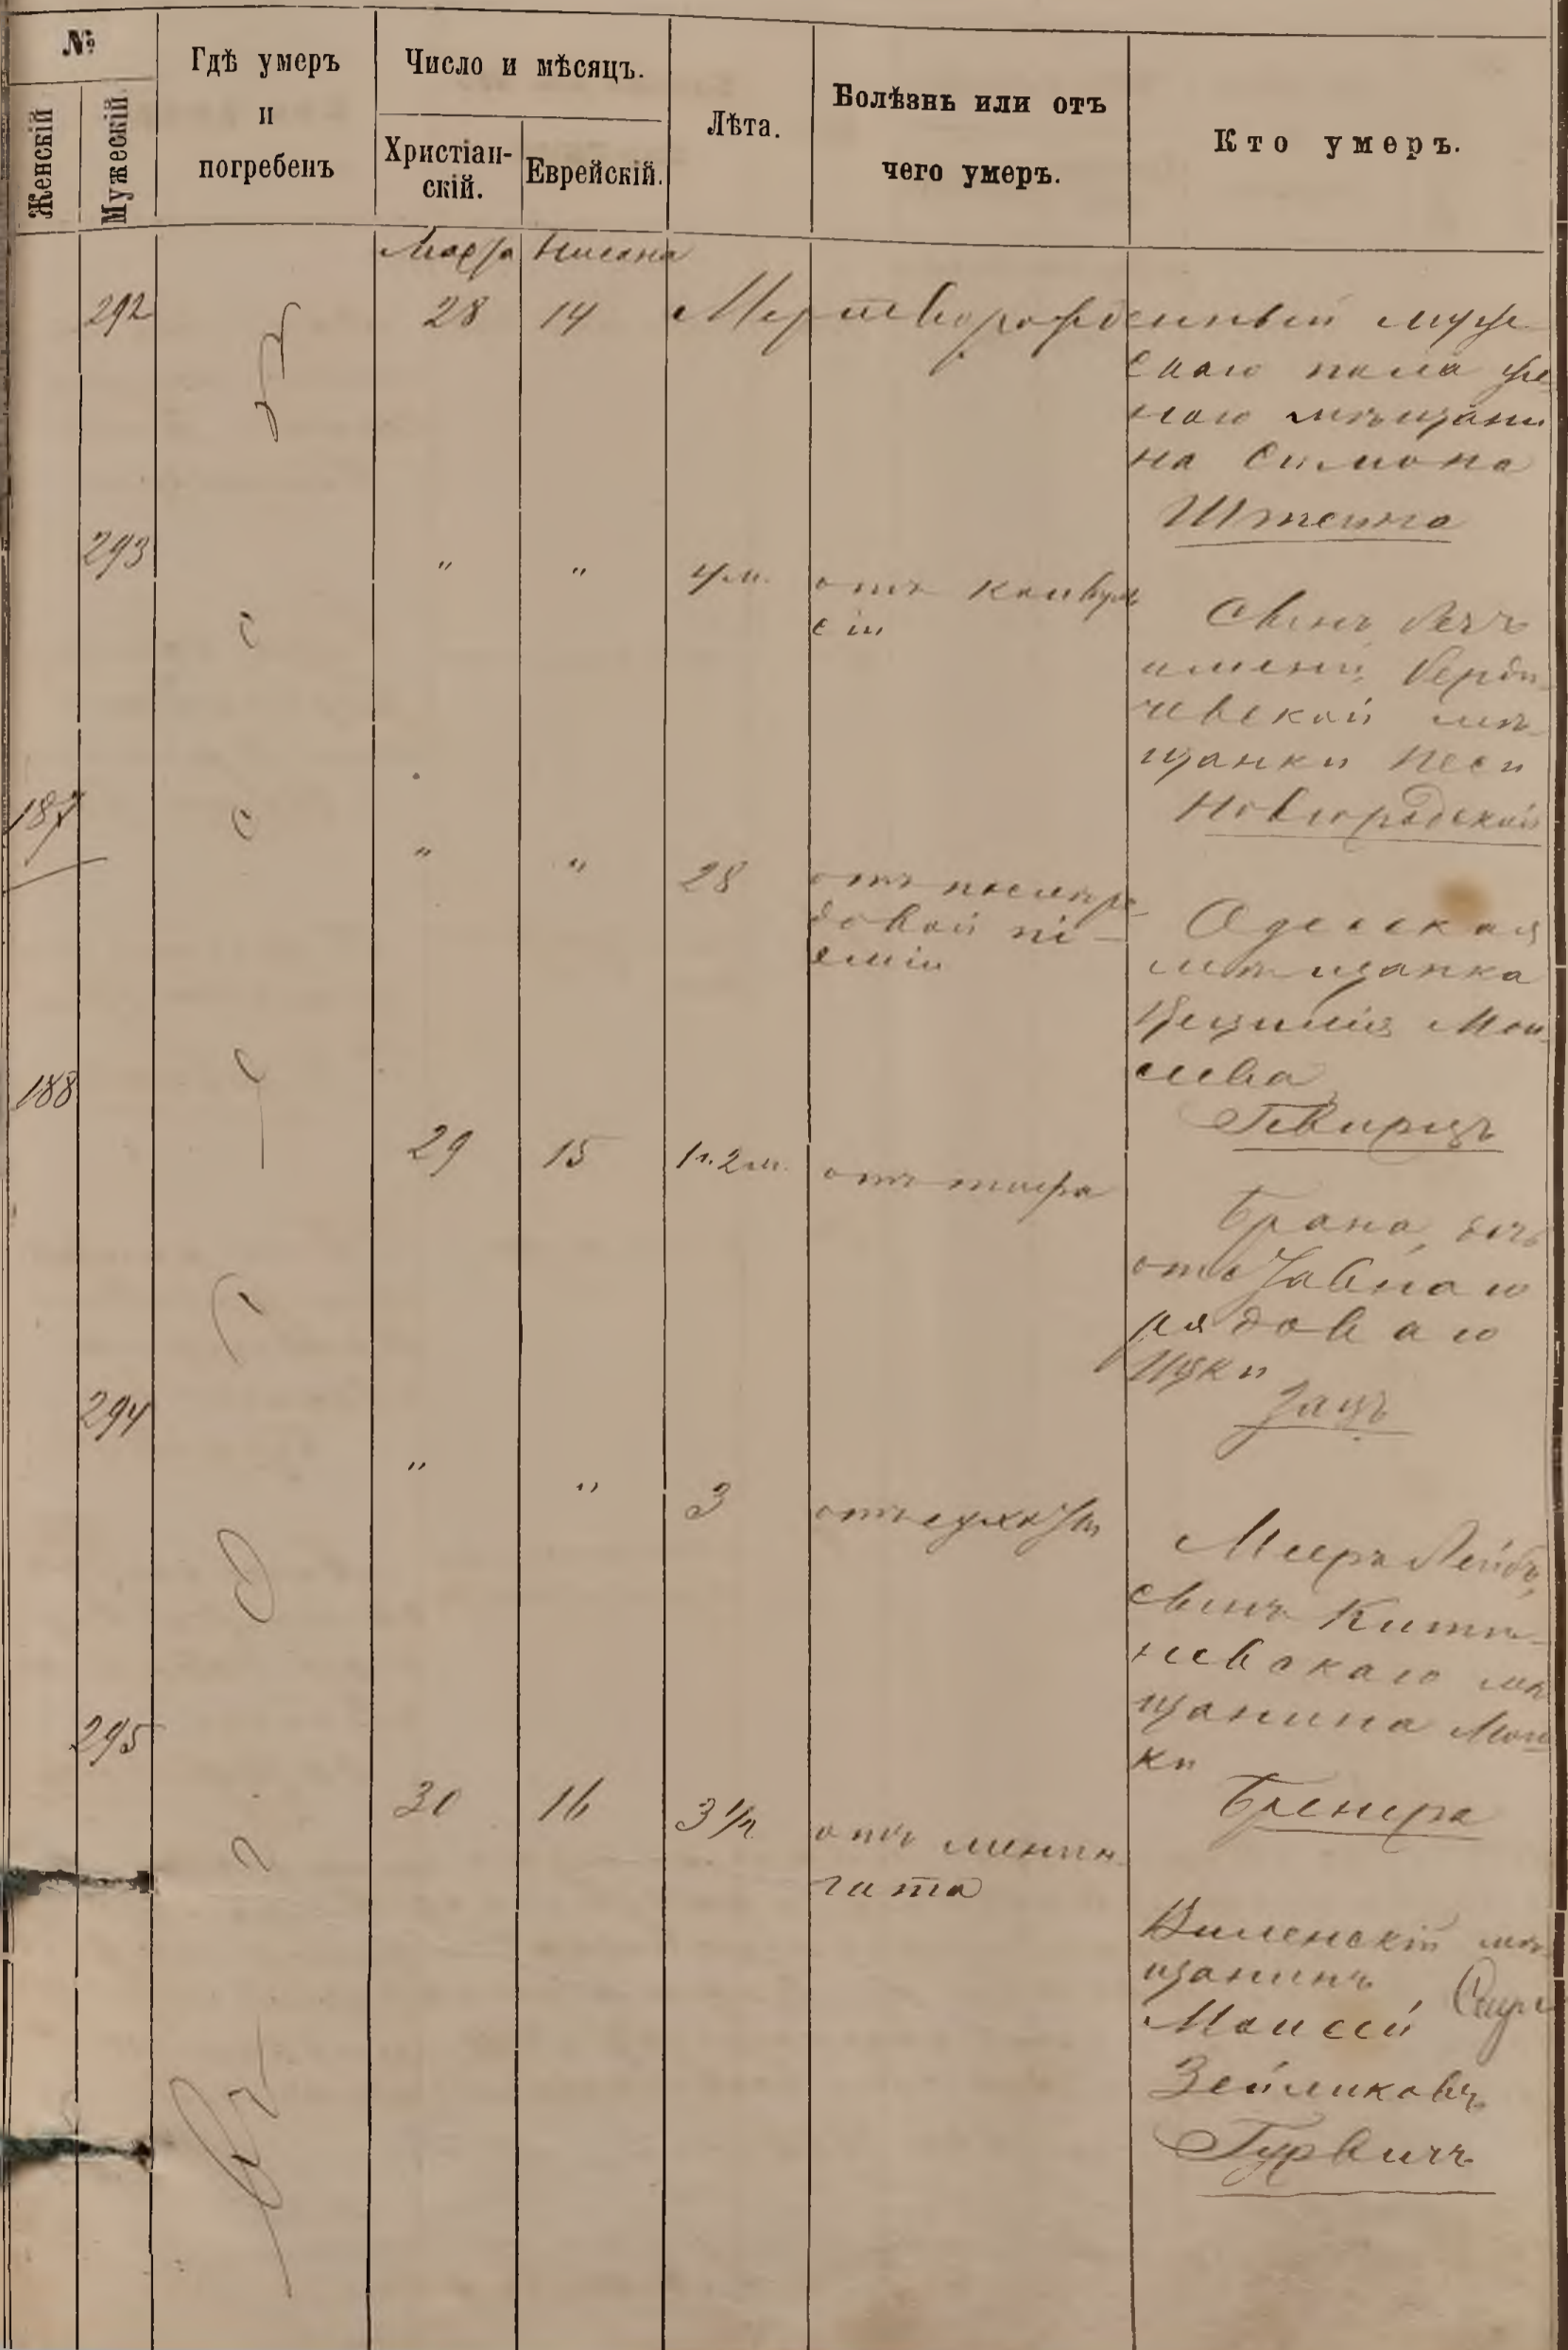 №
Женскій
Мужескій
Гдѣ умеръ
и
погребенъ
Число и мѣсяцъ.
Христіан-
скій.
Еврейскій.
Лѣта.
Болѣзнь или отъ
чего умеръ.
Кто умеръ.
Марта Нисана
292 28 14 Мертворожденный муже
скаго пола
наго мѣщани
на Симона
Штейна
293 " " 4 м. отъ конвуль
сіи
Сынъ безъ
имени, Берди-
чевской мѣ-
щанки Песи
Новогродской
187 " " 28 отъ послѣро
довой пі-
эміи
Одесская
мѣщанка
Цецилія Мои-
сеева
Гевирцъ
188 29 15 1 г. 2 м. отъ тифа
Брана, дочь
отставнаго
рядоваго
Ицки
Зацъ
294 " " 3 отъ сухотки
Мееръ Лейбъ,
сынъ Киши-
невскаго мѣ
щанина Мош
ки
Бренера
295 30 16 3 1/2 отъ менин-
гита
Виленскій мѣ-
щанинъ
Моисей
Зейликовъ
Гурвичъ
Одесса